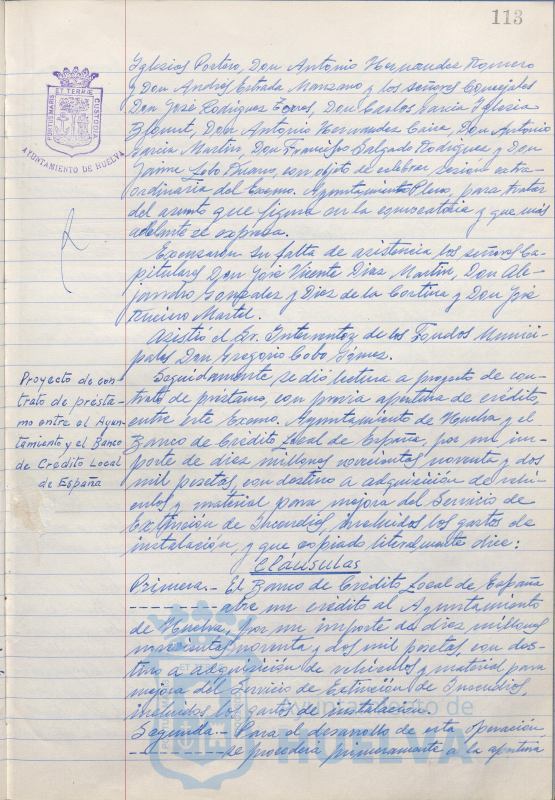 113
PORTUS MARIS ET TERRAE CUSTODIA
AYUNTAMIENTO DE HUELVA
Iglesias Portero, Don Antonio Hernandez Romero
y Don Andrés Estrada Manzano y los señores Concejales
Don José Rodriguez Torres, Don Carlos Garcia Iglesia
Don Antonio Hernandez Don Antonio
Garcia Martin, Don Francisco Salgado Rodriguez y Don
Jaime con objeto de celebrar sesion extra-
ordinaria del Excmo. Ayuntamiento Pleno, para tratar
del asunto que figura en la convocatoria y que más
adelante se expresa.
Excusaron su falta de asistencia los señores Ca-
pitulares Don José Vicente Diaz Martin, Don Ale-
jandro Gonzalez y Diez de la Cortina y Don José
Martel.
Asistió el Sr. Interventor de los Fondos Munici-
pales Don Gregorio Cobo Gómez.
Proyecto de con
trato de présta-
mo entre el Ayun-
tamiento y el Banco
de Crédito Local
de España
Seguidamente se dió lectura a proyecto de con-
trato de prestamo, con previa apertura de crédito,
entre este Excmo. Ayuntamiento de Huelva y el
Banco de Crédito Local de España, por un im-
porte de diez millones novecientas noventa y dos
mil pesetas, con destino a adquisición de vehi-
culos y material para mejora del Servicio de
Extinción de Incendios, incluidos los gastos de
instalación, y que copiado literalmente dice:
Cláusulas
Primera.- El Banco de Crédito Local de España
-------- abre un crédito al Ayuntamiento
de Huelva, por un importe de diez millones
novecientas noventa y dos mil pesetas, con des-
tino a adquisición de vehiculos y material para
mejora del Servicio de Extinción de Incendios,
incluidos los gastos de instalación.
Segunda.- Para el desarrollo de esta operación
-------- se procederá primeramente a la apertura
Ayuntamiento de
HUELVA